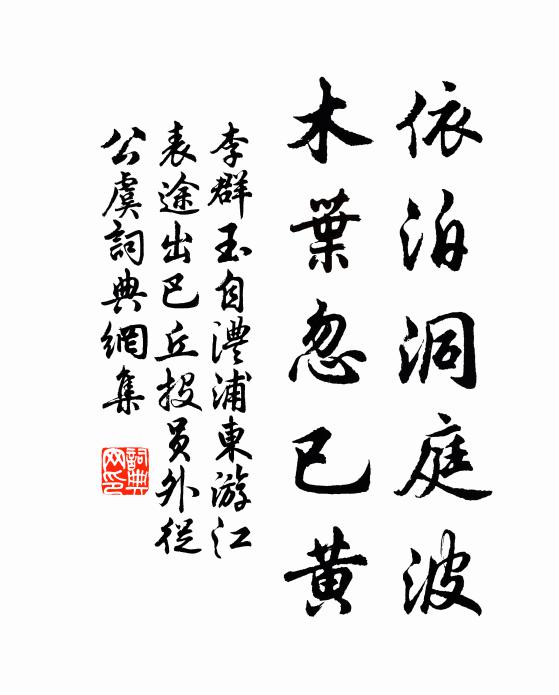 依泊洞庭波
木葉忽已黄
李群玉自澧浦東游江
表途出巴丘投员外從
公虞詞典網集
詞典网印